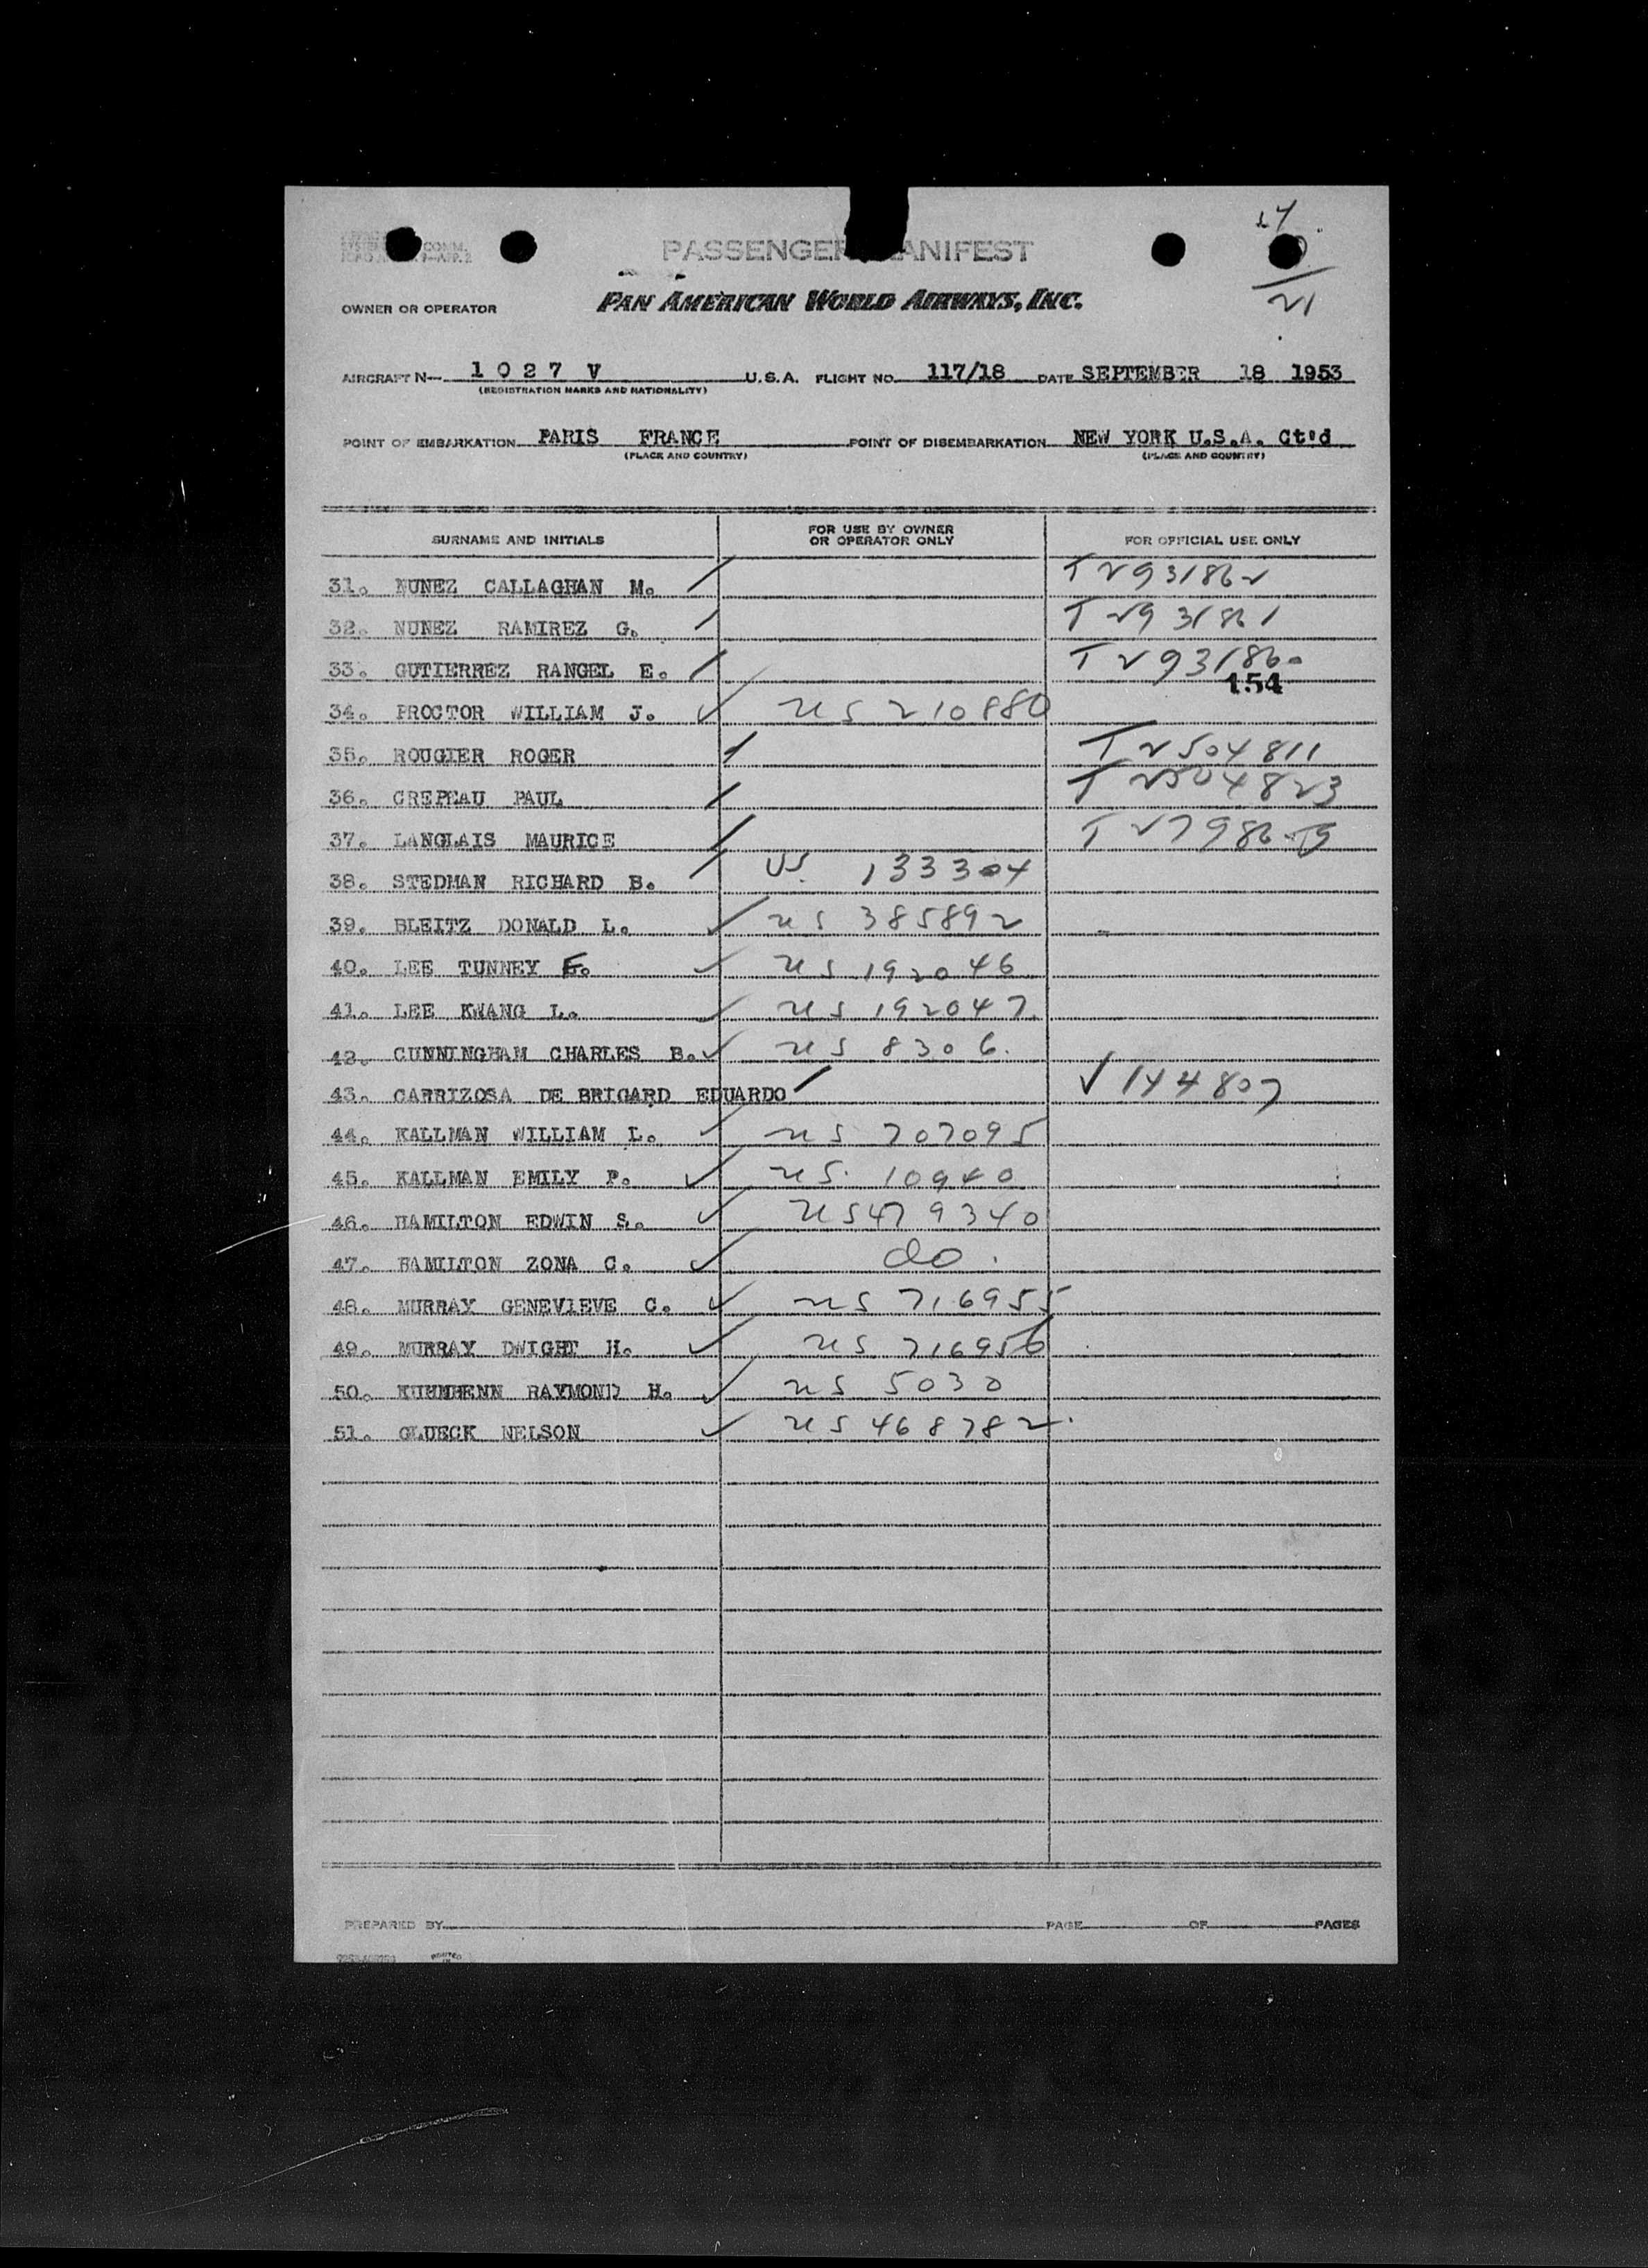 24
COMM.
9—APP. 2
PASSENGER MANIFEST
21
OWNER OR OPERATOR PAN AMERICAN WORLD AIRWAYS, INC.
AIRCRAFT N— 1 0 2 7 V U.S.A. FLIGHT NO. 117/18 DATE SEPTEMBER 18 1953
(REGISTRATION MARKS AND NATIONALITY)
POINT OF EMBARKATION PARIS FRANCE POINT OF DISEMBARKATION NEW YORK U.S.A. Ct'd
(PLACE AND COUNTRY) (PLACE AND COUNTRY)
SURNAME AND INITIALS FOR USE BY OWNER OR OPERATOR ONLY FOR OFFICIAL USE ONLY
31. NUNEZ CALLAGHAN M. / T 2931862
32. NUNEZ RAMIREZ G. / T 2931861
33. GUTIERREZ RANGEL E. / T 2931860
154
34. PROCTOR WILLIAM J. ✓ US 210880
35. ROUGIER ROGER / T 2504811
36. CREPEAU PAUL / T 2504823
37. LANGLAIS MAURICE / T 27986
38. STEDMAN RICHARD B. / US. 133304
39. BLEITZ DONALD L. ✓ US 385892
40. LEE TUNNEY F. ✓ US 192046
41. LEE KWANG L. ✓ US 192047
42. CUNNINGHAM CHARLES B. ✓ US 8306.
43. CARRIZOSA DE BRIGARD EDUARDO / V 144807
44. KALLMAN WILLIAM L. ✓ US 707095
45. KALLMAN EMILY P. ✓ US. 10940
46. HAMILTON EDWIN S. ✓ US 479340
47. HAMILTON ZONA C. ✓ do.
48. MURRAY GENEVIEVE C. ✓ US 716955
49. MURRAY DWIGHT H. ✓ US 716956
50. KUHNHENN RAYMOND H. ✓ US 5030
51. GLUECK NELSON ✓ US 468782.
PREPARED BY PAGE OF PAGES